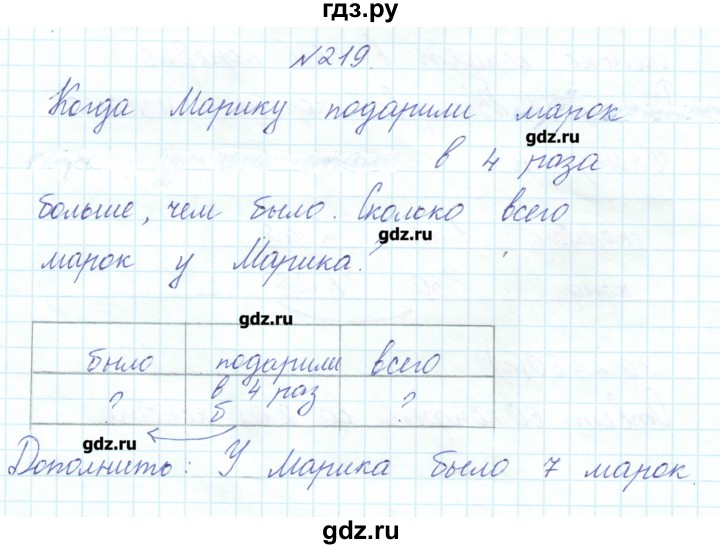 гдз.ру
№219.
Когда Марику подарили марок
gdz.ru
в 4 раза
больше, чем было. Сколько всего
gdz.ru
марок у Марика.
gdz.ru
было подарили всего
? в 4 раз б ?
gdz.ru
Дополнить: У Марика было 7 марок.
gdz.ru